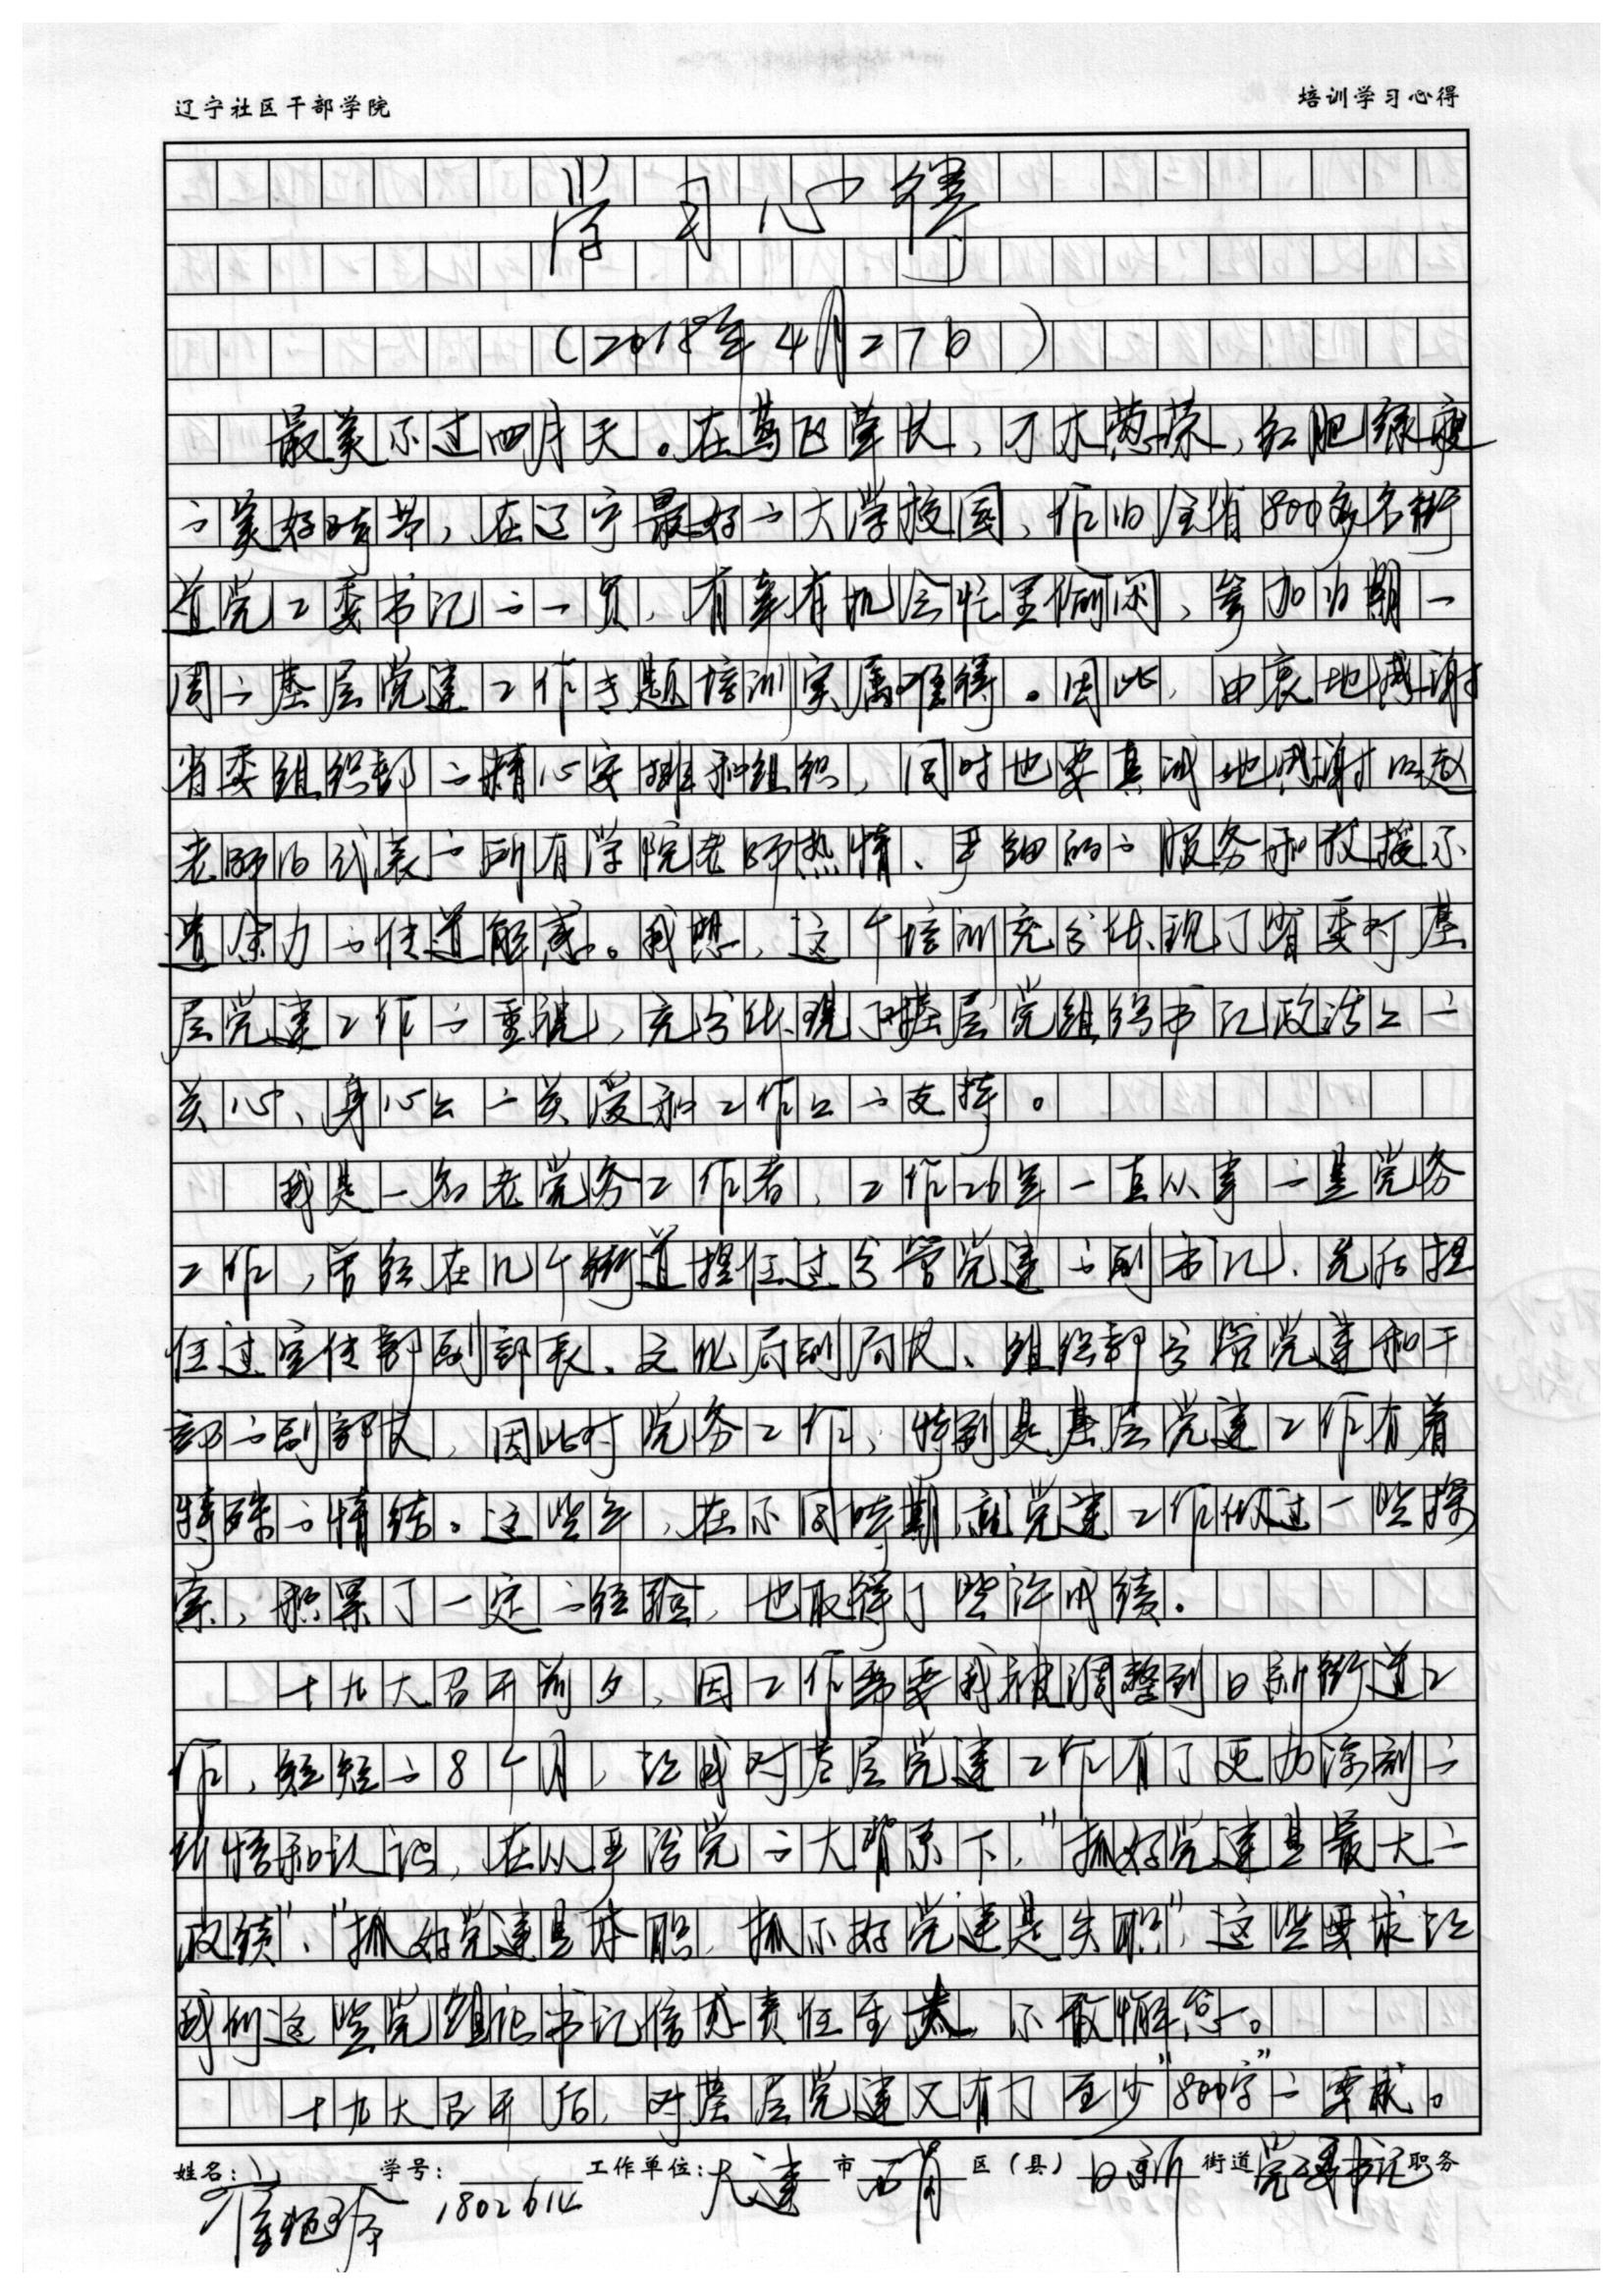 辽宁社区干部学院 培训学习心得
学习心得
（2018年4月27日）
最美不过四月天。在莺飞草长，才木葱茏，红肥绿瘦
的美好时节，在辽宁最好的大学校园，作为全省800多名街
道党工委书记的一员，有幸有机会忙里偷闲，参加为期一
周的基层党建工作专题培训实属难得。因此，由衷地感谢
省委组织部的精心安排和组织，同时也要真诚地感谢以赵
老师为代表的所有学院老师热情、严细的的服务和教授不
遗余力的传道解惑。我想，这个培训充分体现了省委对基
层党建工作的重视，充分体现了对基层党组织书记政治上的
关心、身心上的关爱和工作上的支持。
我是一名老党务工作者，工作26年一直从事的是党务
工作，曾经在几个街道担任过分管党建的副书记、先后担
任过宣传部副部长、文化局副局长、组织部分管党建和干
部的副部长，因此对党务工作，特别是基层党建工作有着
特殊的情结。这些年，在不同时期就党建工作做过一些探
索，积累了一定的经验，也取得了些许成绩。
十九大召开前夕，因工作需要我被调整到日新街道工
作，短短的8个月，让我对基层党建工作有了更为深刻的
体悟和认识，在从严治党的大背景下，“抓好党建是最大的
政绩”、“抓好党建是本职，抓不好党建是失职”，这些要求让
我们这些党组织书记倍感责任重大，不敢懈怠。
十九大召开后，对基层党建又有了至少“800字”的要求。
姓名： 学号：1802614 工作单位：大连市西岗区（县）日新街道党工委书记职务